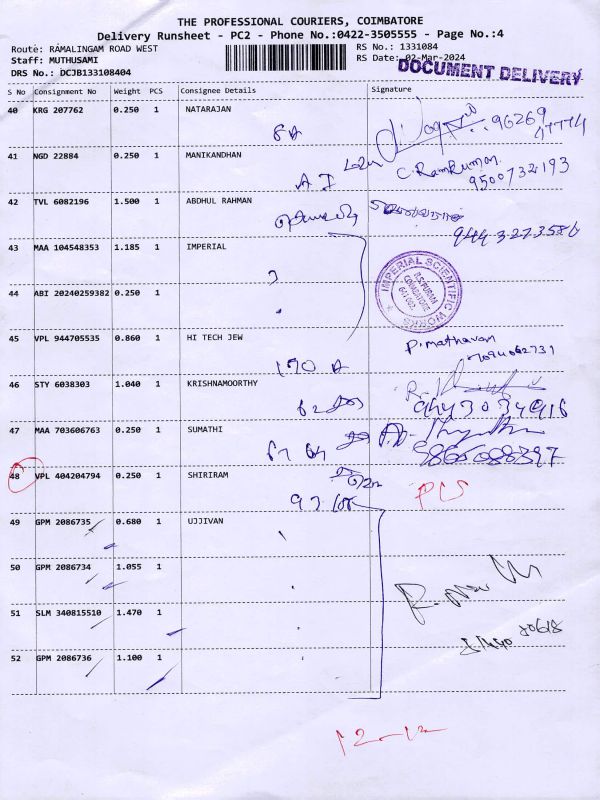 THE PROFESSIONAL COURIERS, COIMBATORE
Delivery Runsheet - PC2 - Phone No.:0422-3505555 - Page No.:4
Route: RAMALINGAM ROAD WEST
Staff: MUTHUSAMI
DRS No.: DCJB133108404
RS No.: 1331084
RS Date: 02-Mar-2024
DOCUMENT DELIVERY
S No Consignment No Weight PCS Consignee Details Signature
40 KRG 207762 0.250 1 NATARAJAN
8A
96269
47774
41 NGD 22884 0.250 1 MANIKANDHAN
C. Ramkumar.
9500732193
42 TVL 6082196 1.500 1 ABDHUL RAHMAN
944 3273586
43 MAA 104548353 1.185 1 IMPERIAL
IMPERIAL SCIENTIFIC WORKS
R.S.PURAM
COIMBATORE
641 002
44 ABI 20240259382 0.250 1
45 VPL 944705535 0.860 1 HI TECH JEW
170 A
P. mathavan
7094062731
46 STY 6038303 1.040 1 KRISHNAMOORTHY
9443034916
47 MAA 703606763 0.250 1 SUMATHI
9866088397
48 VPL 404204794 0.250 1 SHIRIRAM
97
49 GPM 2086735 0.680 1 UJJIVAN
50 GPM 2086734 1.055 1
51 SLM 340815510 1.470 1
52 GPM 2086736 1.100 1
12-12